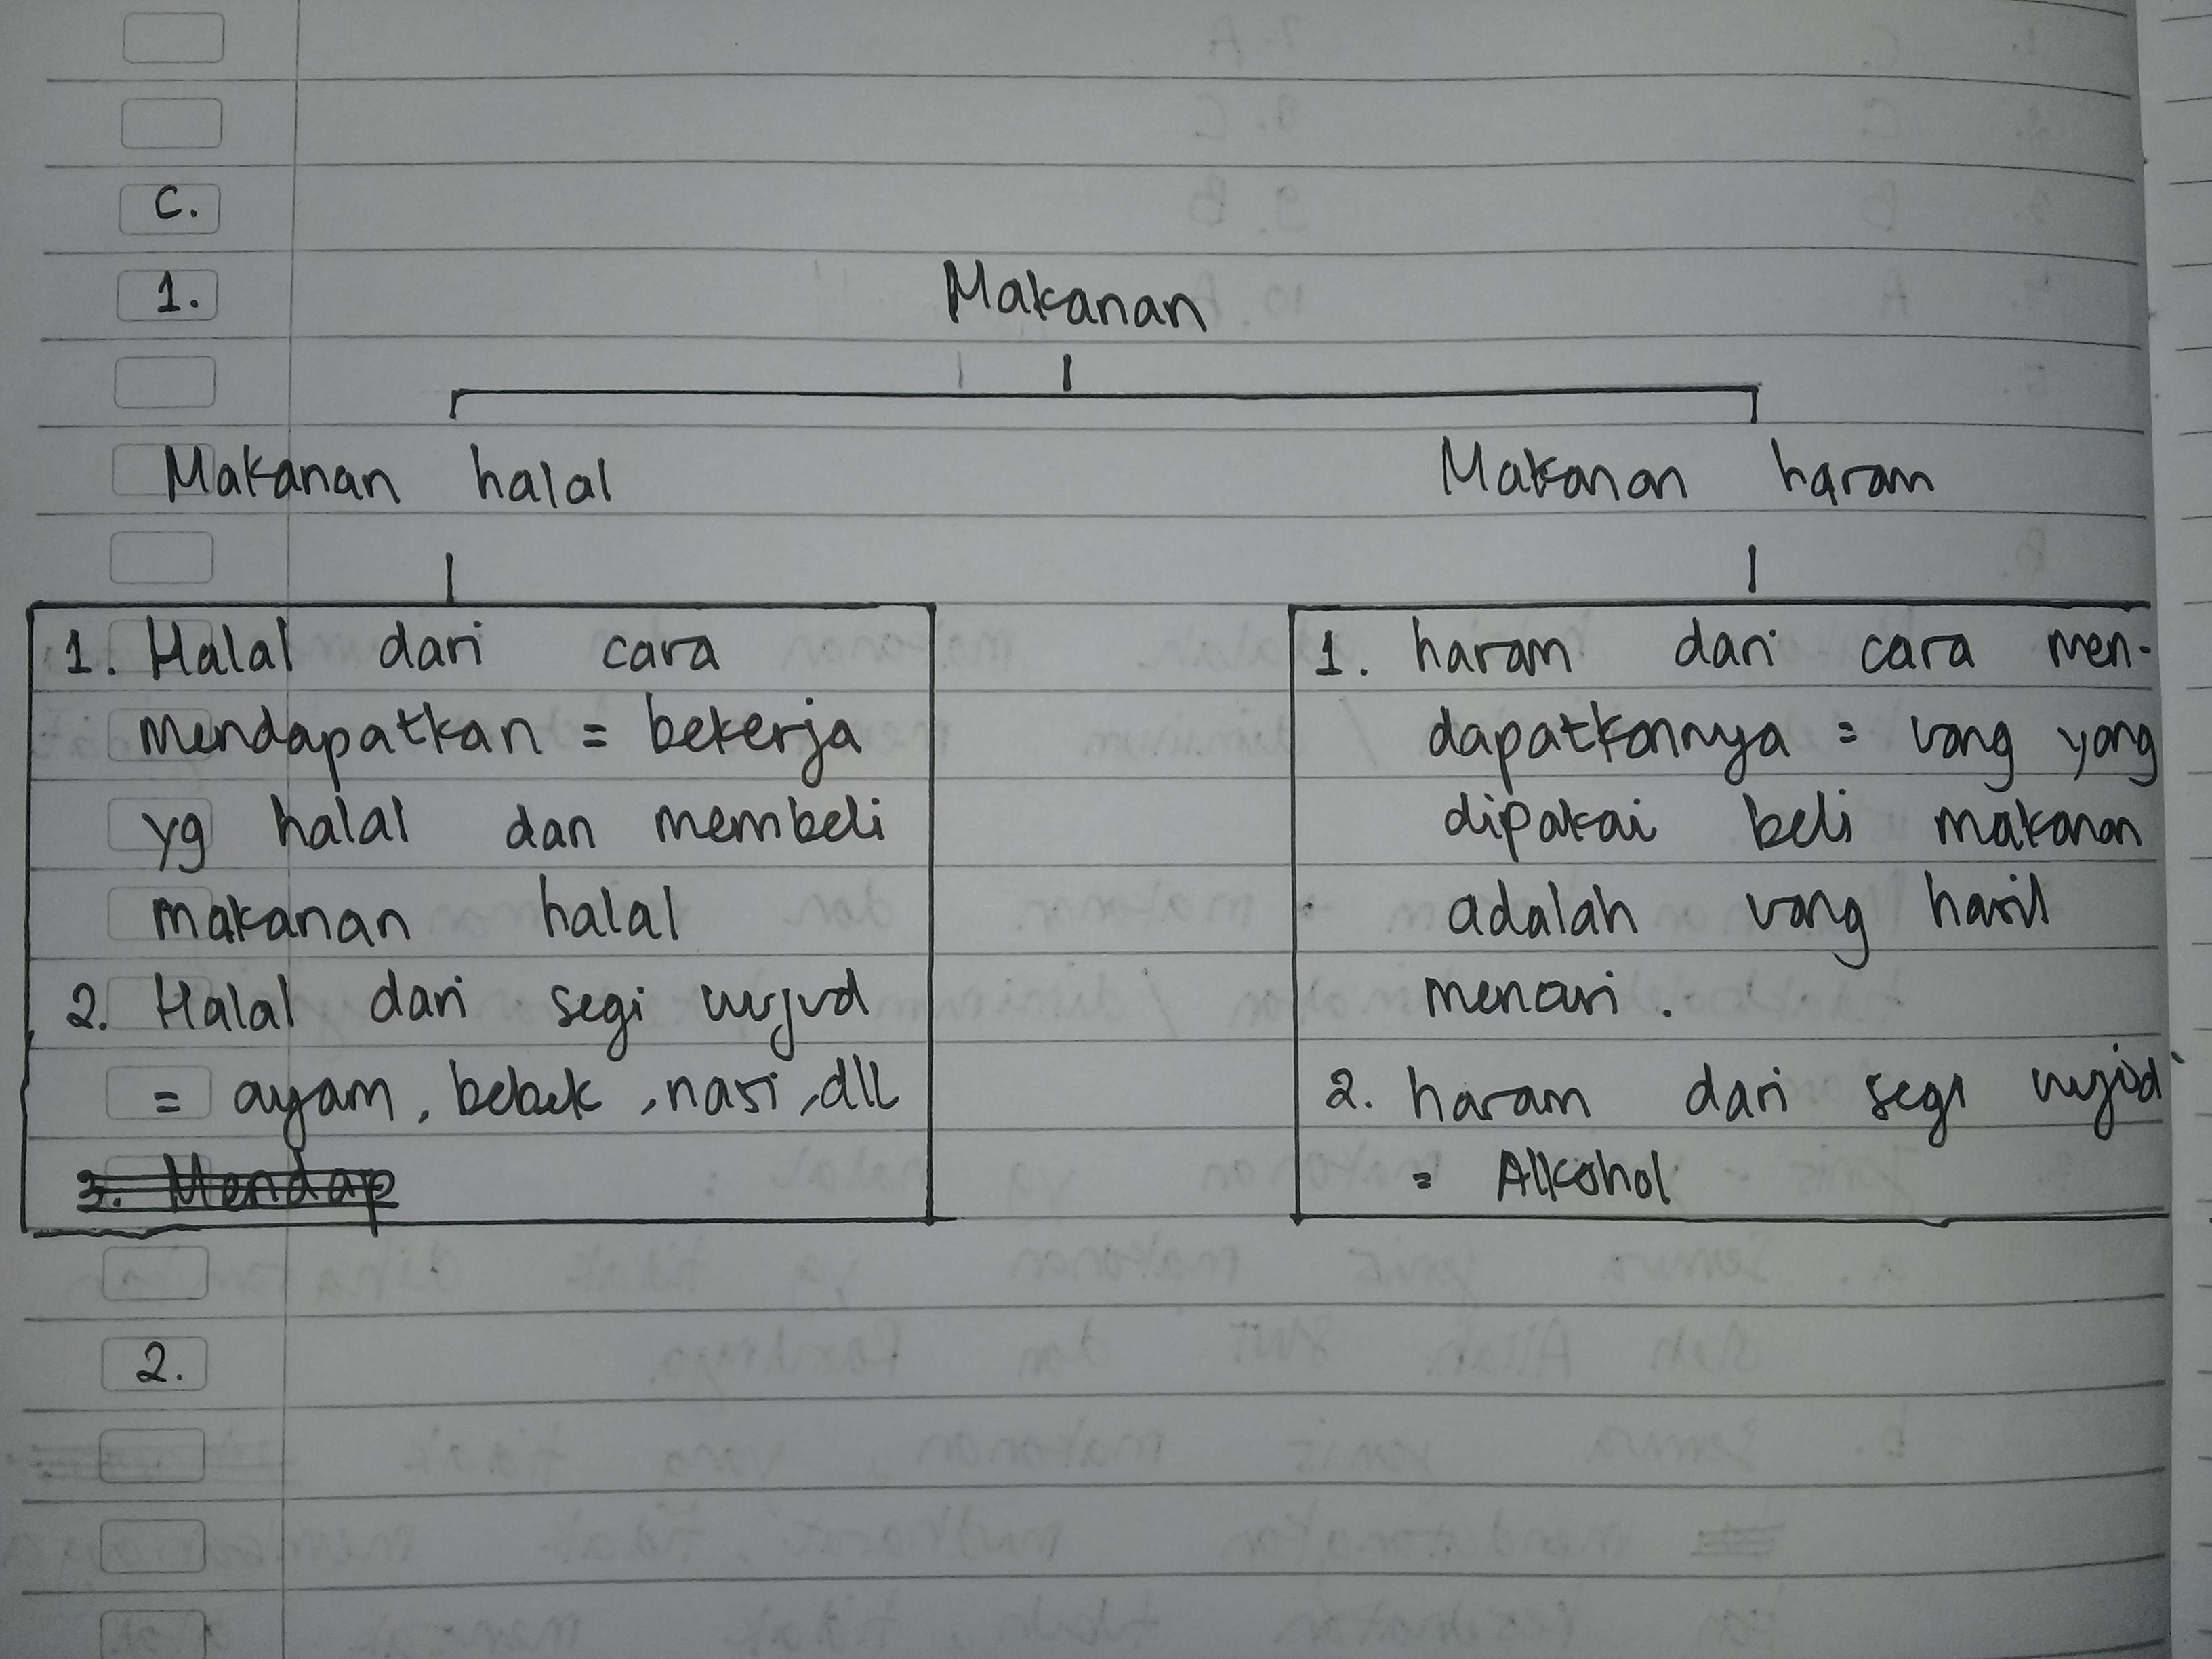 C.
1. Makanan
Makanan halal
Makanan haram
1. Halal dari cara
mendapatkan = bekerja
yg halal dan membeli
makanan halal
2. Halal dari segi wujud
= ayam, bebek, nasi, dll
3. Mendap
1. haram dari cara men-
dapatkannya = uang yang
dipakai beli makanan
adalah uang hasil
mencuri.
2. haram dari segi wujud
= Alkohol
2.